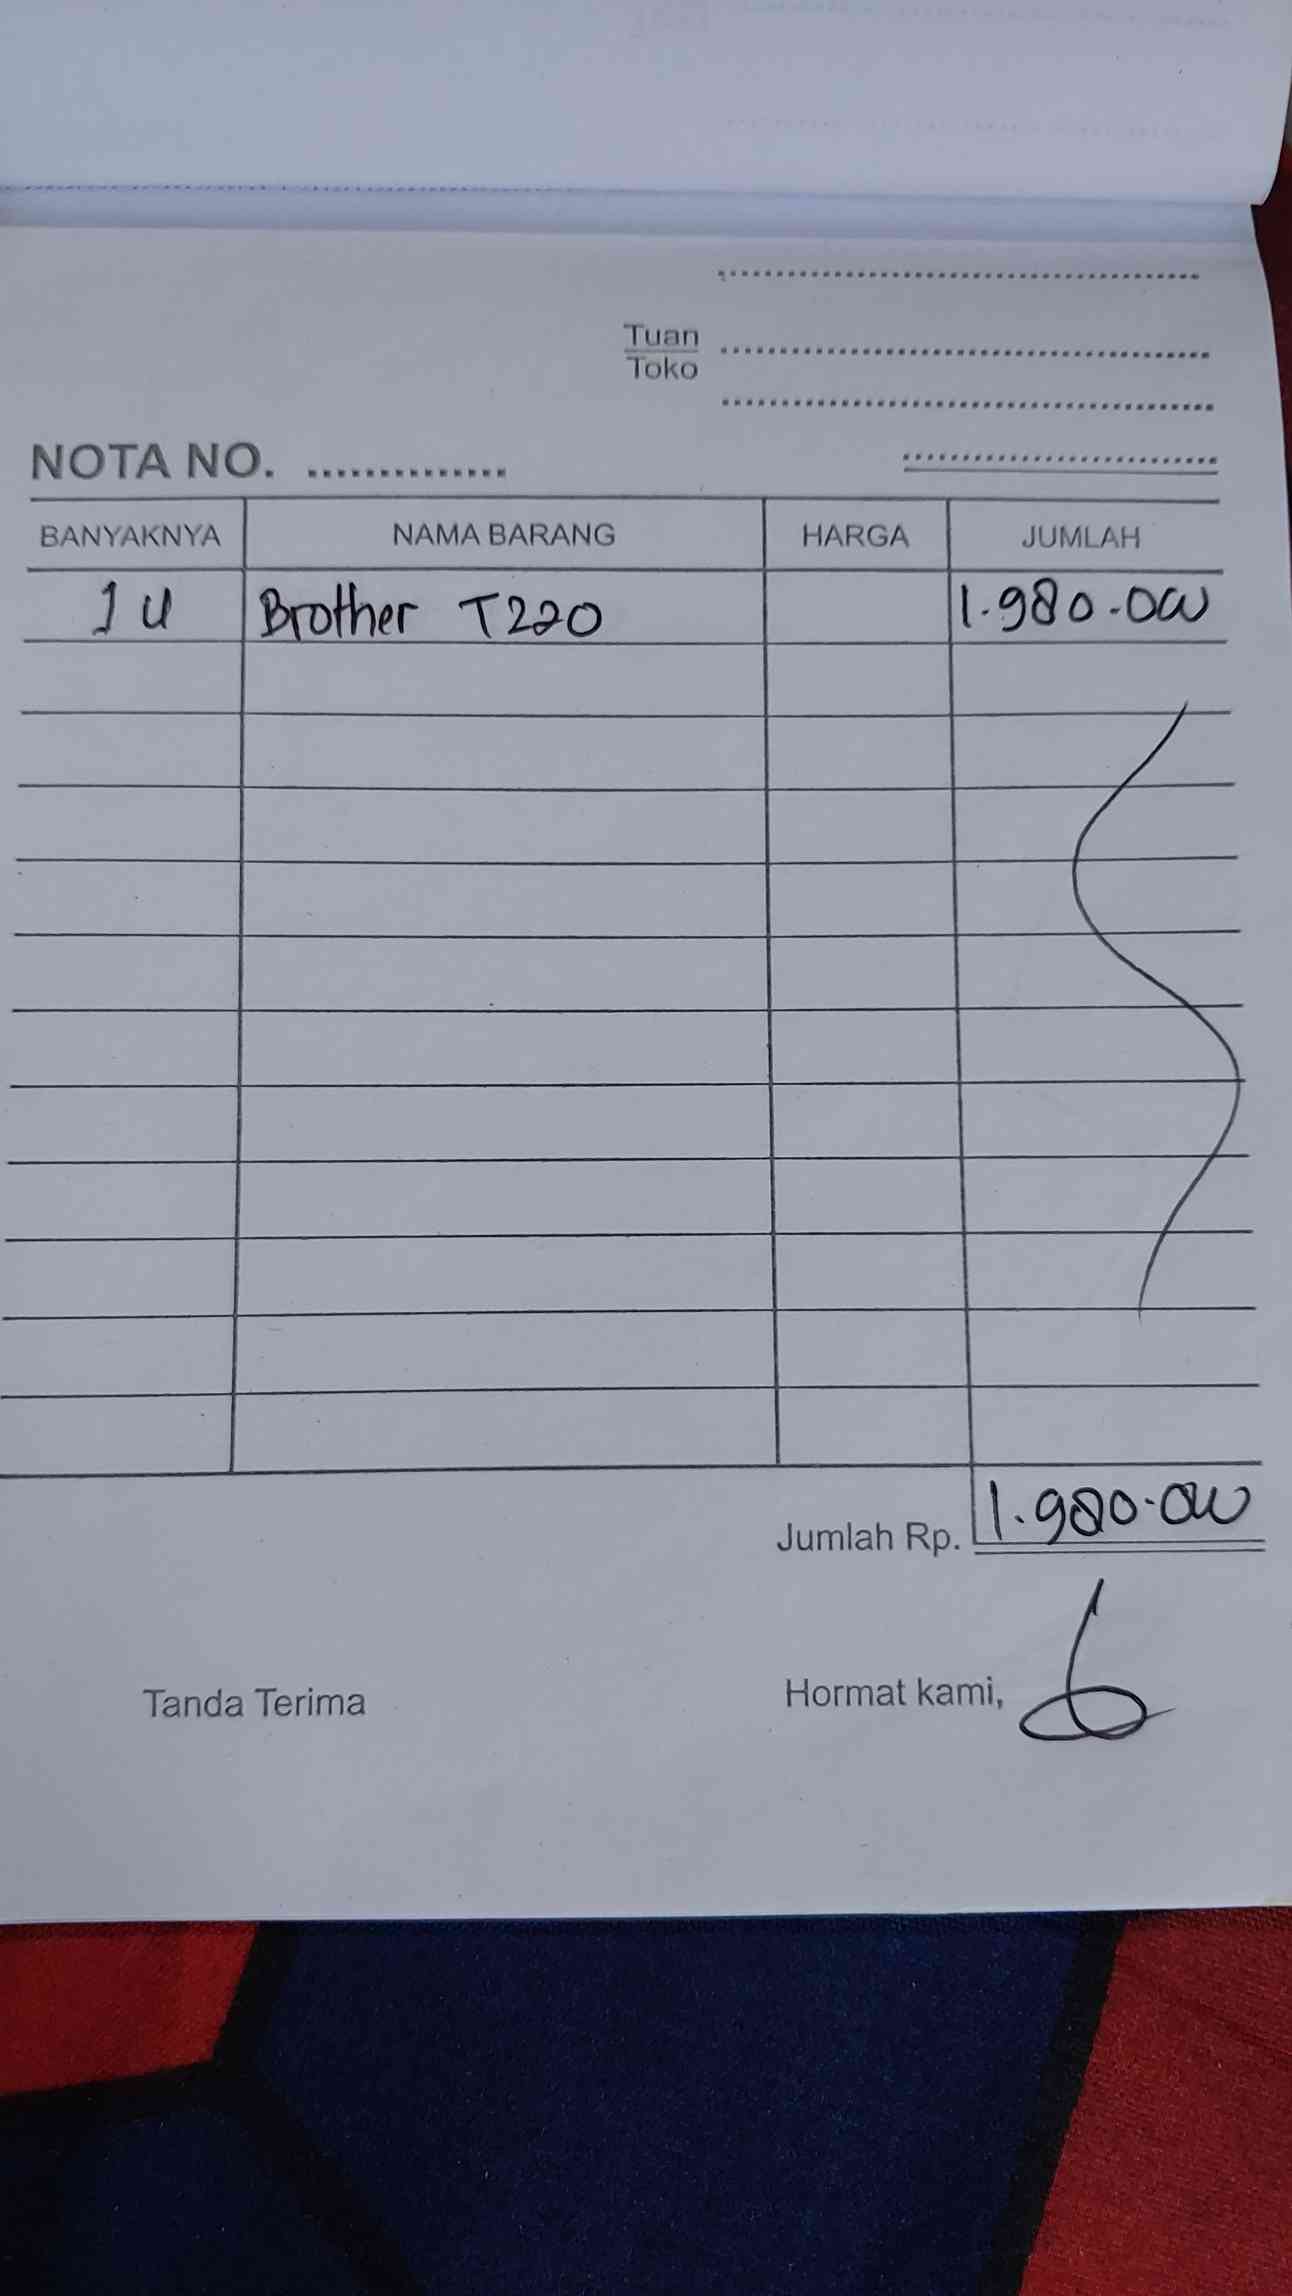 Tuan
Toko
NOTA NO. ..............
BANYAKNYA NAMA BARANG HARGA JUMLAH
1 U Brother T220 1.980.000
Jumlah Rp. 1.980.000
Tanda Terima Hormat kami,